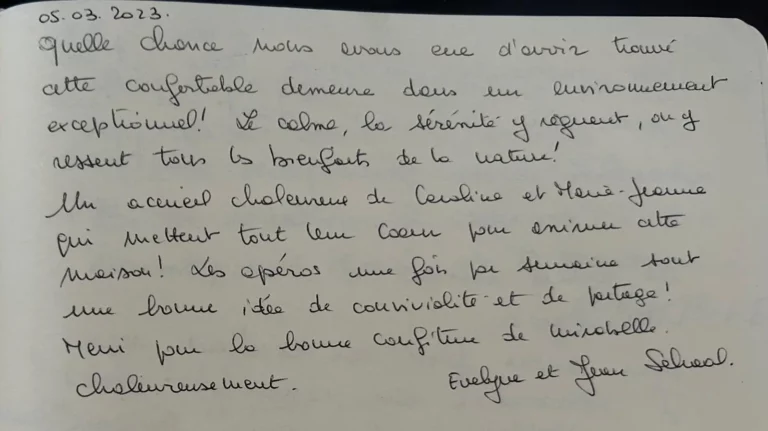 05.03.2023.
Quelle chance nous avons eue d'avoir trouvé
cette confortable demeure dans un environnement
exceptionnel! Le calme, la sérénité y règnent, on y
ressent tous les bienfaits de la nature!
Un accueil chaleureux de Caroline et Marie-Jeanne
qui mettent tout leur Coeur pour animer cette
maison! Les apéros une fois par semaine sont
une bonne idée de convivialité et de partage!
Merci pour la bonne confiture de mirabelle.
chaleureusement. Evelyne et Jean